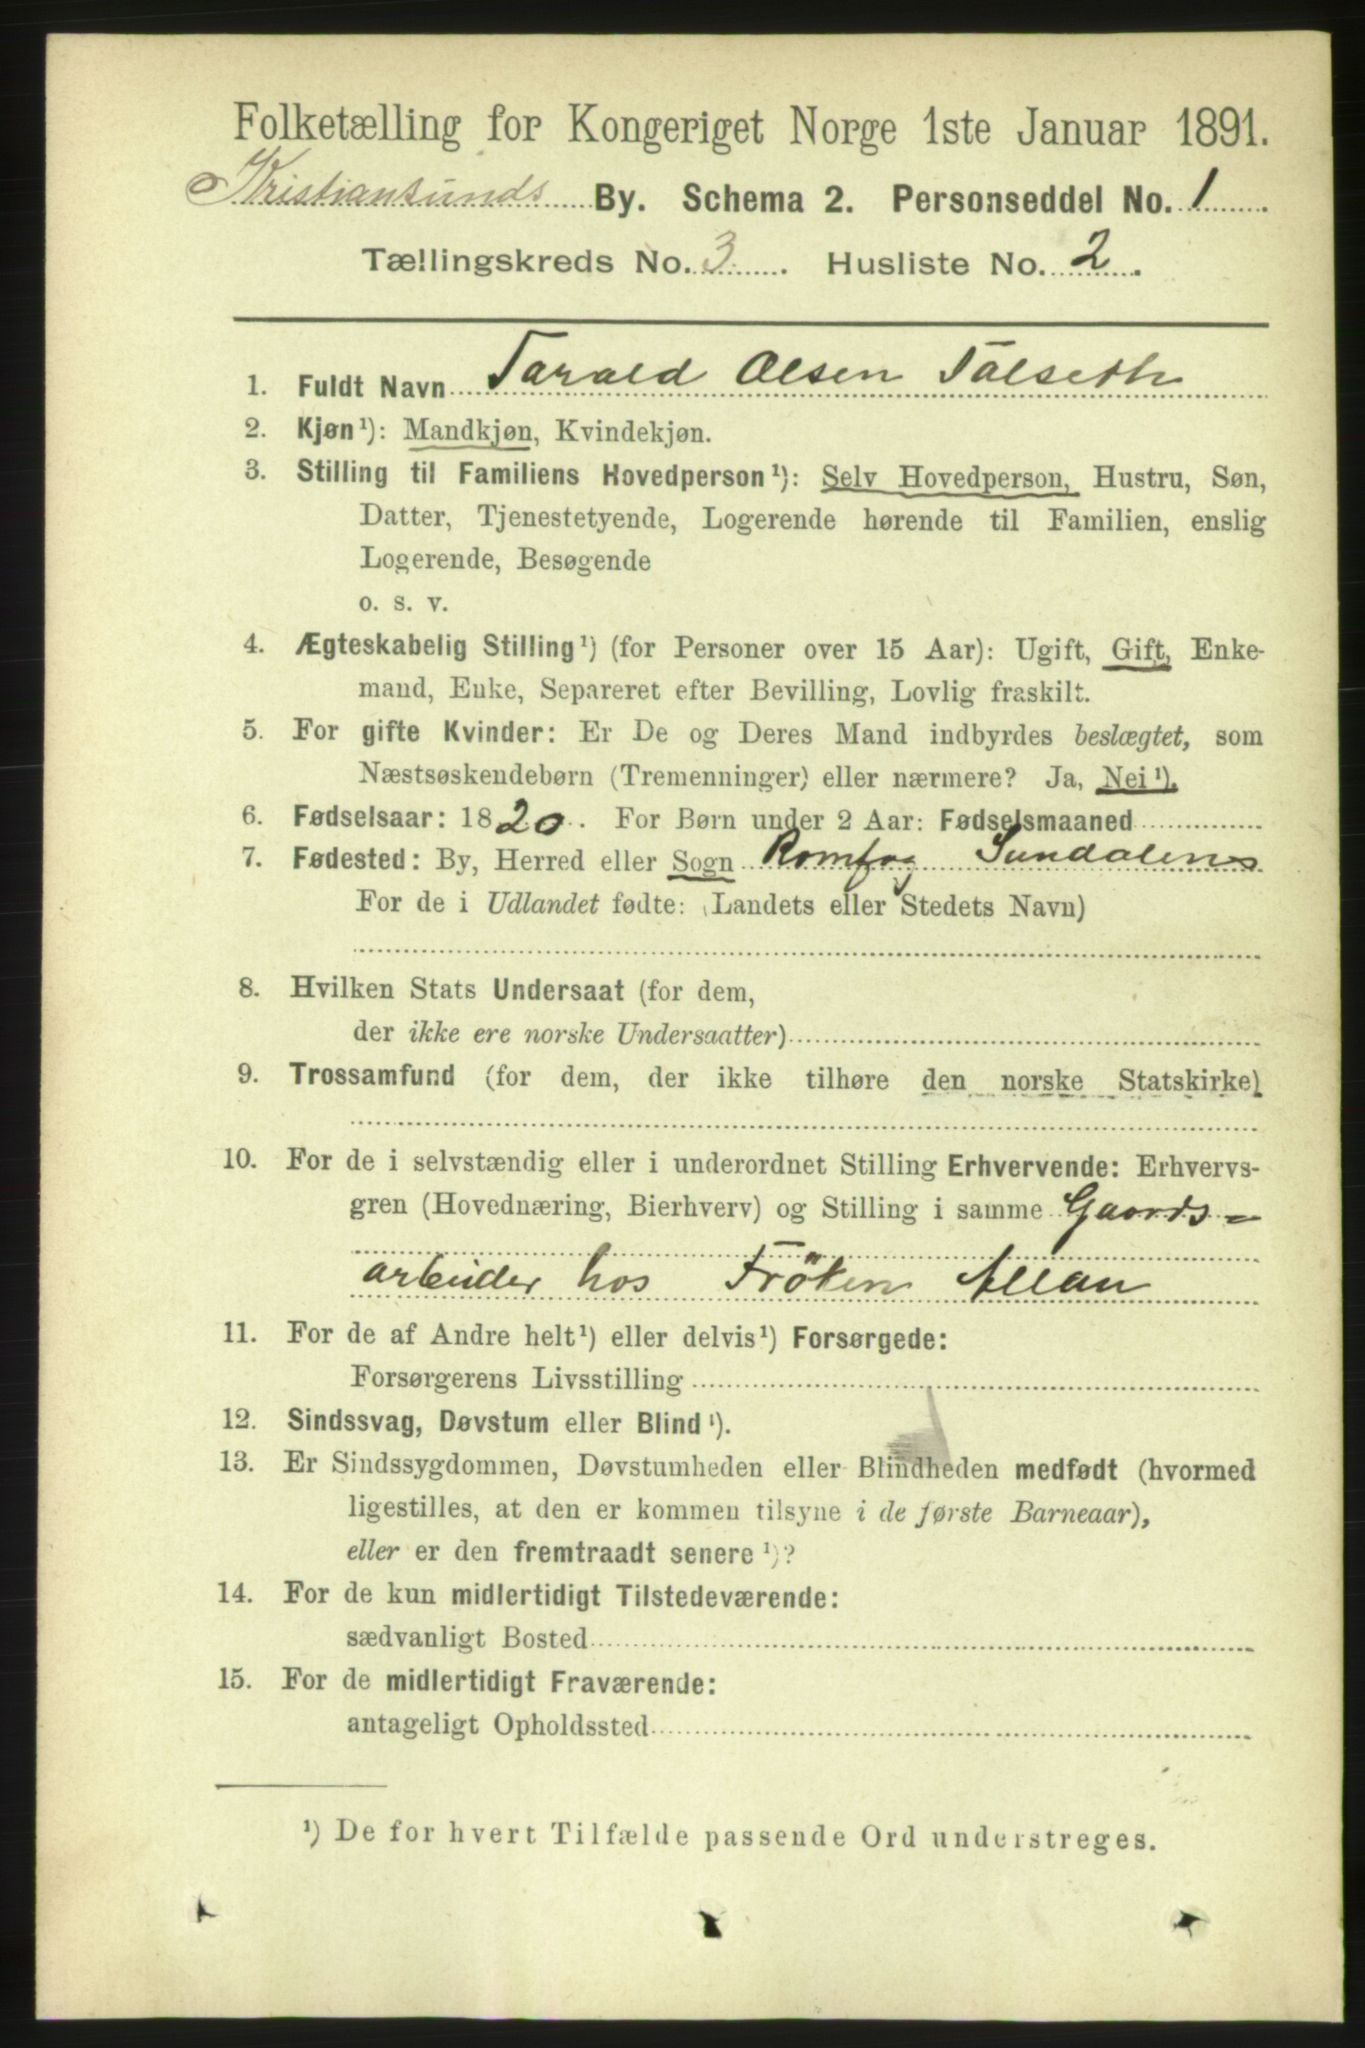 Folketælling for Kongeriget Norge 1ste Januar 1891.
Kristiansunds By. Schema 2. Personseddel No. 1
Tællingskreds No. 3. Husliste No. 2.
1. Fuldt Navn Tarald Olsen Talseth
2. Kjøn¹): Mandkjøn, Kvindekjøn.
3. Stilling til Familiens Hovedperson¹): Selv Hovedperson, Hustru, Søn,
Datter, Tjenestetyende, Logerende hørende til Familien, enslig
Logerende, Besøgende
o. s. v.
4. Ægteskabelig Stilling¹) (for Personer over 15 Aar): Ugift, Gift, Enke-
mand, Enke, Separeret efter Bevilling, Lovlig fraskilt.
5. For gifte Kvinder: Er De og Deres Mand indbyrdes beslægtet, som
Næstsøskendebørn (Tremenninger) eller nærmere? Ja, Nei¹).
6. Fødselsaar: 1820. For Børn under 2 Aar: Fødselsmaaned
7. Fødested: By, Herred eller Sogn Romfog Sundalens
For de i Udlandet fødte: (Landets eller Stedets Navn)
8. Hvilken Stats Undersaat (for dem,
der ikke ere norske Undersaatter)
9. Trossamfund (for dem, der ikke tilhøre den norske Statskirke)
10. For de i selvstændig eller i underordnet Stilling Erhvervende: Erhvervs-
gren (Hovednæring, Bierhverv) og Stilling i samme Gaards-
arbeider hos Fröken Allan
11. For de af Andre helt¹) eller delvis¹) Forsørgede:
Forsørgerens Livsstilling
12. Sindssvag, Døvstum eller Blind¹).
13. Er Sindssygdommen, Døvstumheden eller Blindheden medfødt (hvormed
ligestilles, at den er kommen tilsyne i de første Barneaar),
eller er den fremtraadt senere¹)?
14. For de kun midlertidigt Tilstedeværende:
sædvanligt Bosted
15. For de midlertidigt Fraværende:
antageligt Opholdssted
¹) De for hvert Tilfælde passende Ord understreges.